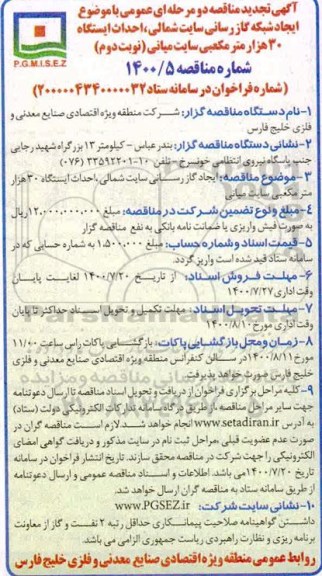 آگهی تجدید مناقصه دو مرحله ای عمومی با موضوع
ایجاد شبکه گاز رسانی سایت شمالی، احداث ایستگاه
۳۰ هزار متر مکعبی سایت میانی (نوبت دوم)
شماره مناقصه ۱۴۰۰/۵
(شماره فراخوان در سامانه ستاد ۲۰۰۰۰۰۴۳۴۰۰۰۰۰۳۲)
P.G.M.I.S.E.Z
۱- نام دستگاه مناقصه گزار: شرکت منطقه ویژه اقتصادی صنایع معدنی و
فلزی خلیج فارس
۲- نشانی دستگاه مناقصه گزار: بندرعباس - کیلومتر ۱۳ بزرگراه شهید رجایی
جنب پاسگاه نیروی انتظامی خونسرخ - تلفن ۱۰-۳۳۵۹۲۲۰۱ (۰۷۶)
۳- موضوع مناقصه: ایجاد گاز رسانی سایت شمالی، احداث ایستگاه ۳۰ هزار
متر مکعبی سایت میانی
۴- مبلغ و نوع تضمین شرکت در مناقصه: مبلغ ۱۲,۰۰۰,۰۰۰,۰۰۰ ریال
به صورت فیش واریزی یا ضمانت نامه بانکی به نفع مناقصه گزار
۵- قیمت اسناد و شماره حساب: مبلغ ۱,۵۰۰,۰۰۰ به شماره حسابی که در
سامانه ستاد قید شده است واریز گردد.
۶- مهلت فروش اسناد: از تاریخ ۱۴۰۰/۷/۲۰ لغایت پایان
وقت اداری ۱۴۰۰/۷/۲۷
۷- مهلت تحویل اسناد: مهلت تکمیل و تحویل اسناد حداکثر تا پایان
وقت اداری مورخ ۱۴۰۰/۸/۱۰
۸- زمان و محل بازگشایی پاکات: بازگشایی پاکات راس ساعت ۱۱/۰۰
مورخ ۱۴۰۰/۸/۱۱ در سالن کنفرانس منطقه ویژه اقتصادی صنایع معدنی و فلزی
خلیج فارس صورت خواهد پذیرفت
۹- کلیه مراحل برگزاری فراخوان از دریافت و تحویل اسناد مناقصه تا ارسال دعوتنامه
جهت سایر مراحل مناقصه از طریق درگاه سامانه تدارکات الکترونیکی دولت (ستاد)
به آدرس www.setadiran.ir انجام خواهد شد. لازم است مناقصه گران در
صورت عدم عضویت قبلی، مراحل ثبت نام در سایت مذکور و دریافت گواهی امضای
الکترونیکی را جهت شرکت در مناقصه محقق سازند. تاریخ انتشار فراخوان در سامانه
تاریخ ۱۴۰۰/۷/۲۰ می باشد. اطلاعات و اسناد مناقصه عمومی و ارسال دعوتنامه
از طریق سامانه ستاد به مناقصه گران ارسال خواهد شد.
۱۰- نشانی سایت شرکت: www.PGSEZ.ir
داشتن گواهینامه صلاحیت پیمانکاری حداقل رتبه ۲ نفت و گاز از معاونت
برنامه ریزی و نظارت راهبردی ریاست جمهوری الزامی می باشد.
روابط عمومی منطقه ویژه اقتصادی صنایع معدنی و فلزی خلیج فارس